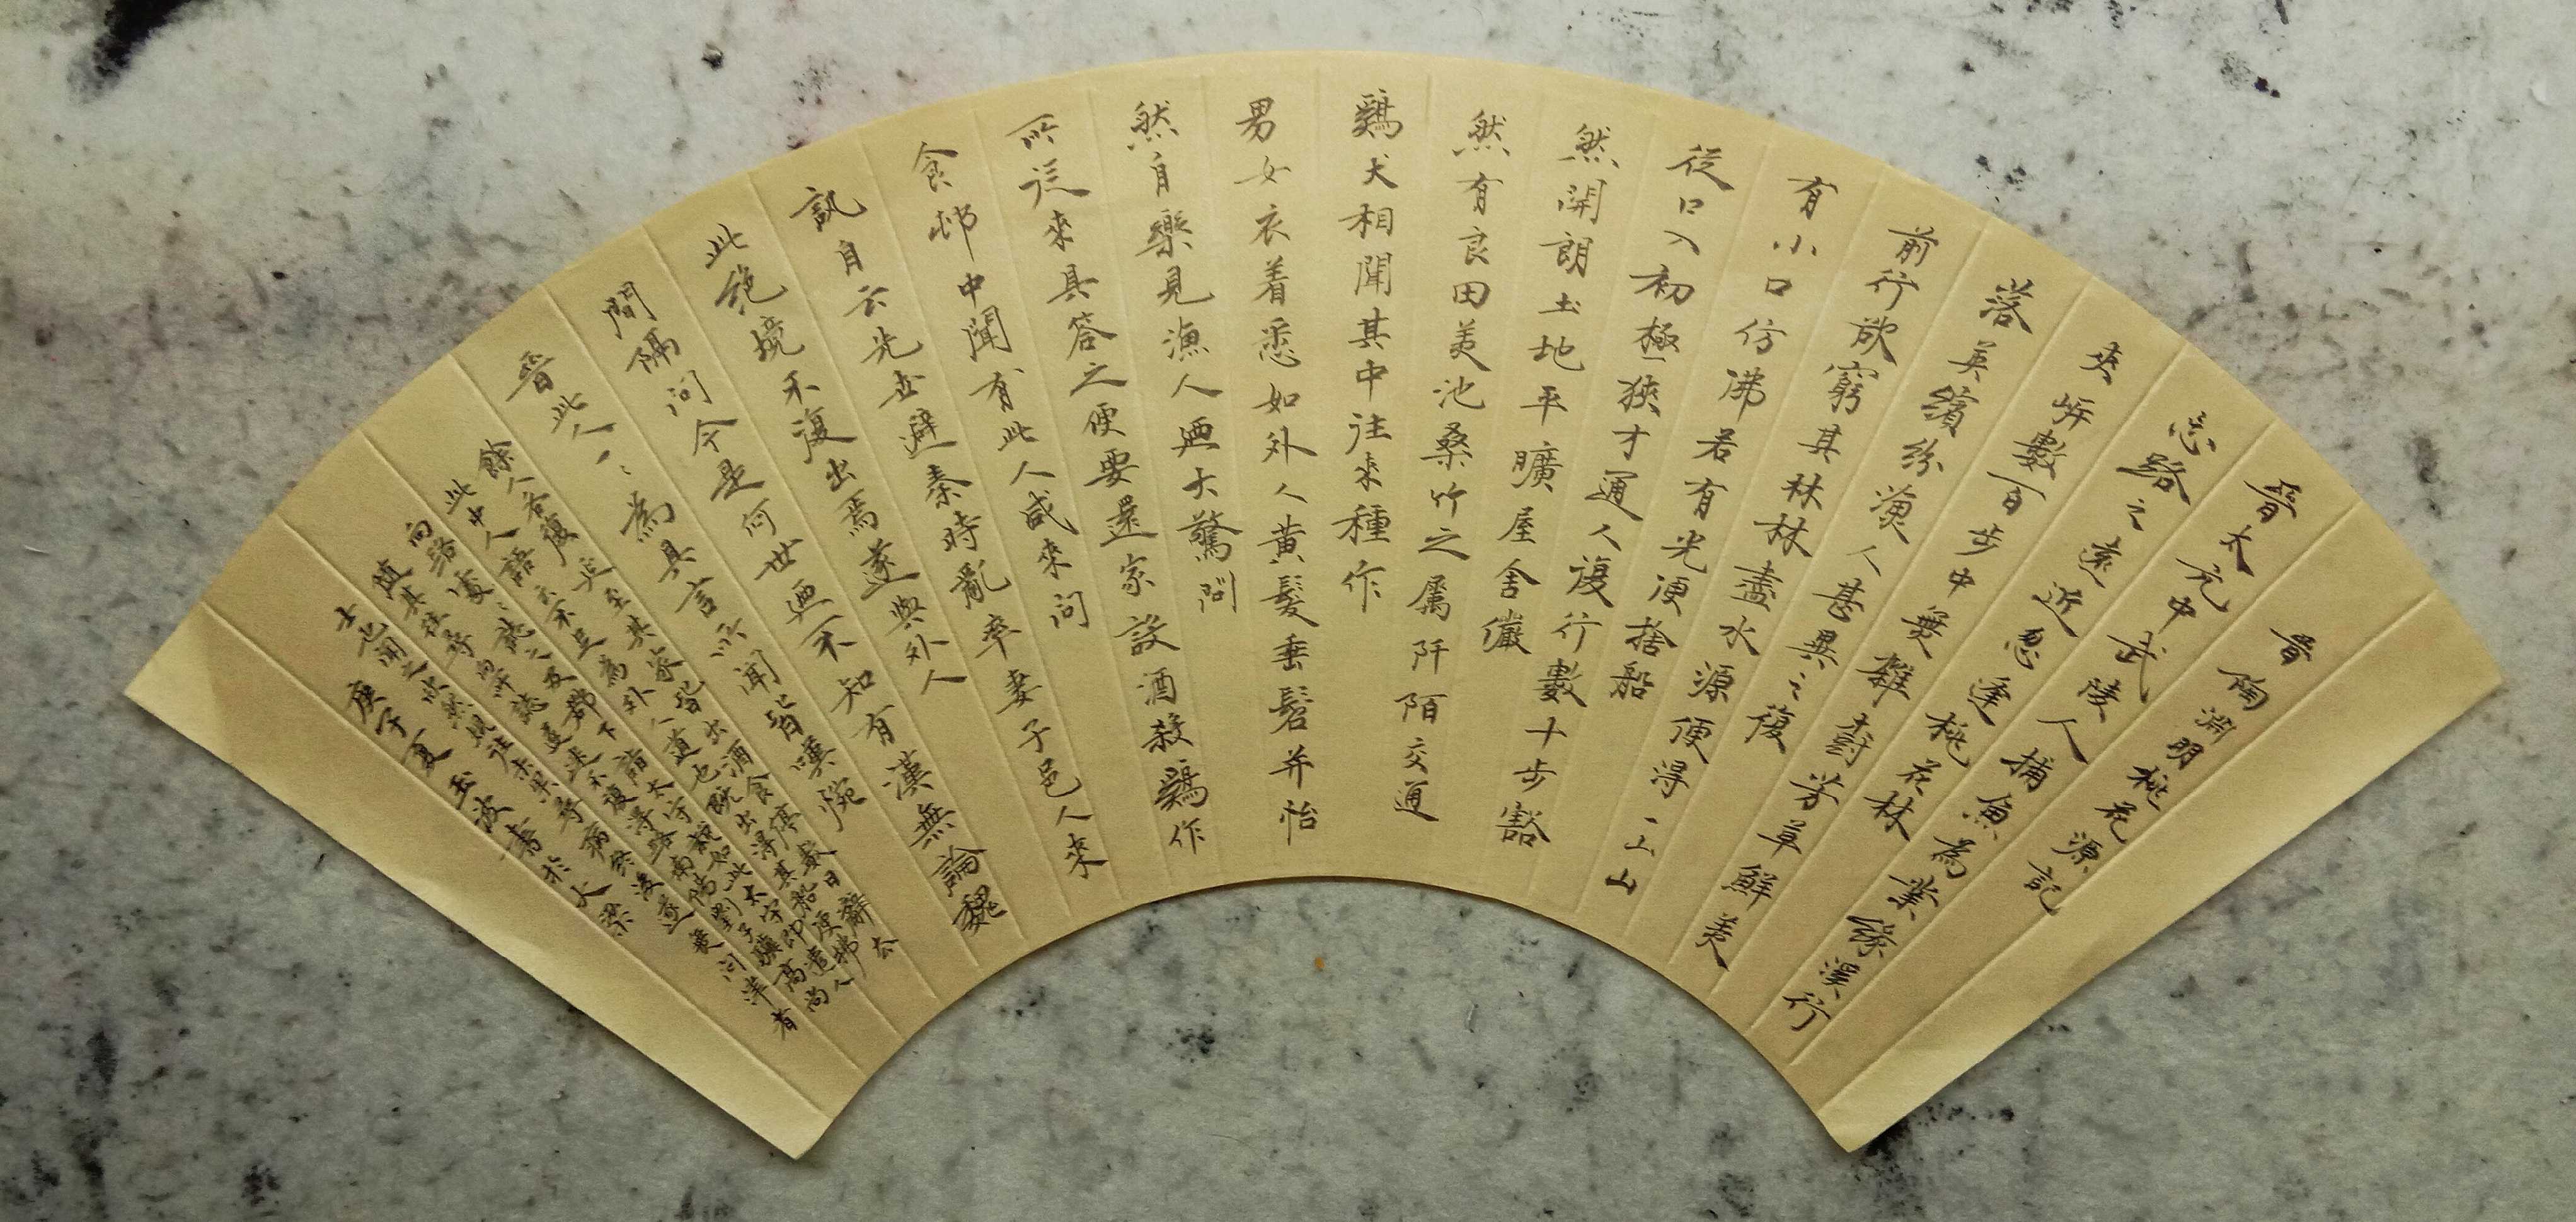 晉陶淵明桃花源記
晉太元中武陵人捕魚為業緣溪行
忘路之遠近忽逢桃花林
夾岸數百步中無雜樹芳草鮮美
落英繽紛漁人甚異之復
前行欲窮其林林盡水源便得一山山
有小口仿沸若有光便捨船
從口入初極狹才通人復行數十步豁
然開朗土地平曠屋舍儼
然有良田美池桑竹之属阡陌交通
鷄犬相聞其中往來種作
男女衣着悉如外人黄髮垂髫并怡
然自樂見漁人迺大驚問
所從來具答之便要還家設酒殺鷄作
食邨中聞有此人咸來問
訊自云先世避秦時亂率妻子邑人來
此絶境不復出焉遂與外人
間隔問今是何世迺不知有漢無論魏
晉此人一一為具言所聞皆嘆惋
餘人各復延至其家皆出酒食停數日辭去
此中人語云不足為外人道也既出得其船便扶
向路處處誌之及郡下詣太守說如此太守即遣人
隨其往尋向所誌遂迷不復得路南陽劉子驥高尚
士也聞之欣然規往未果尋病終後遂無問津者
庚子夏玉波書於大梁